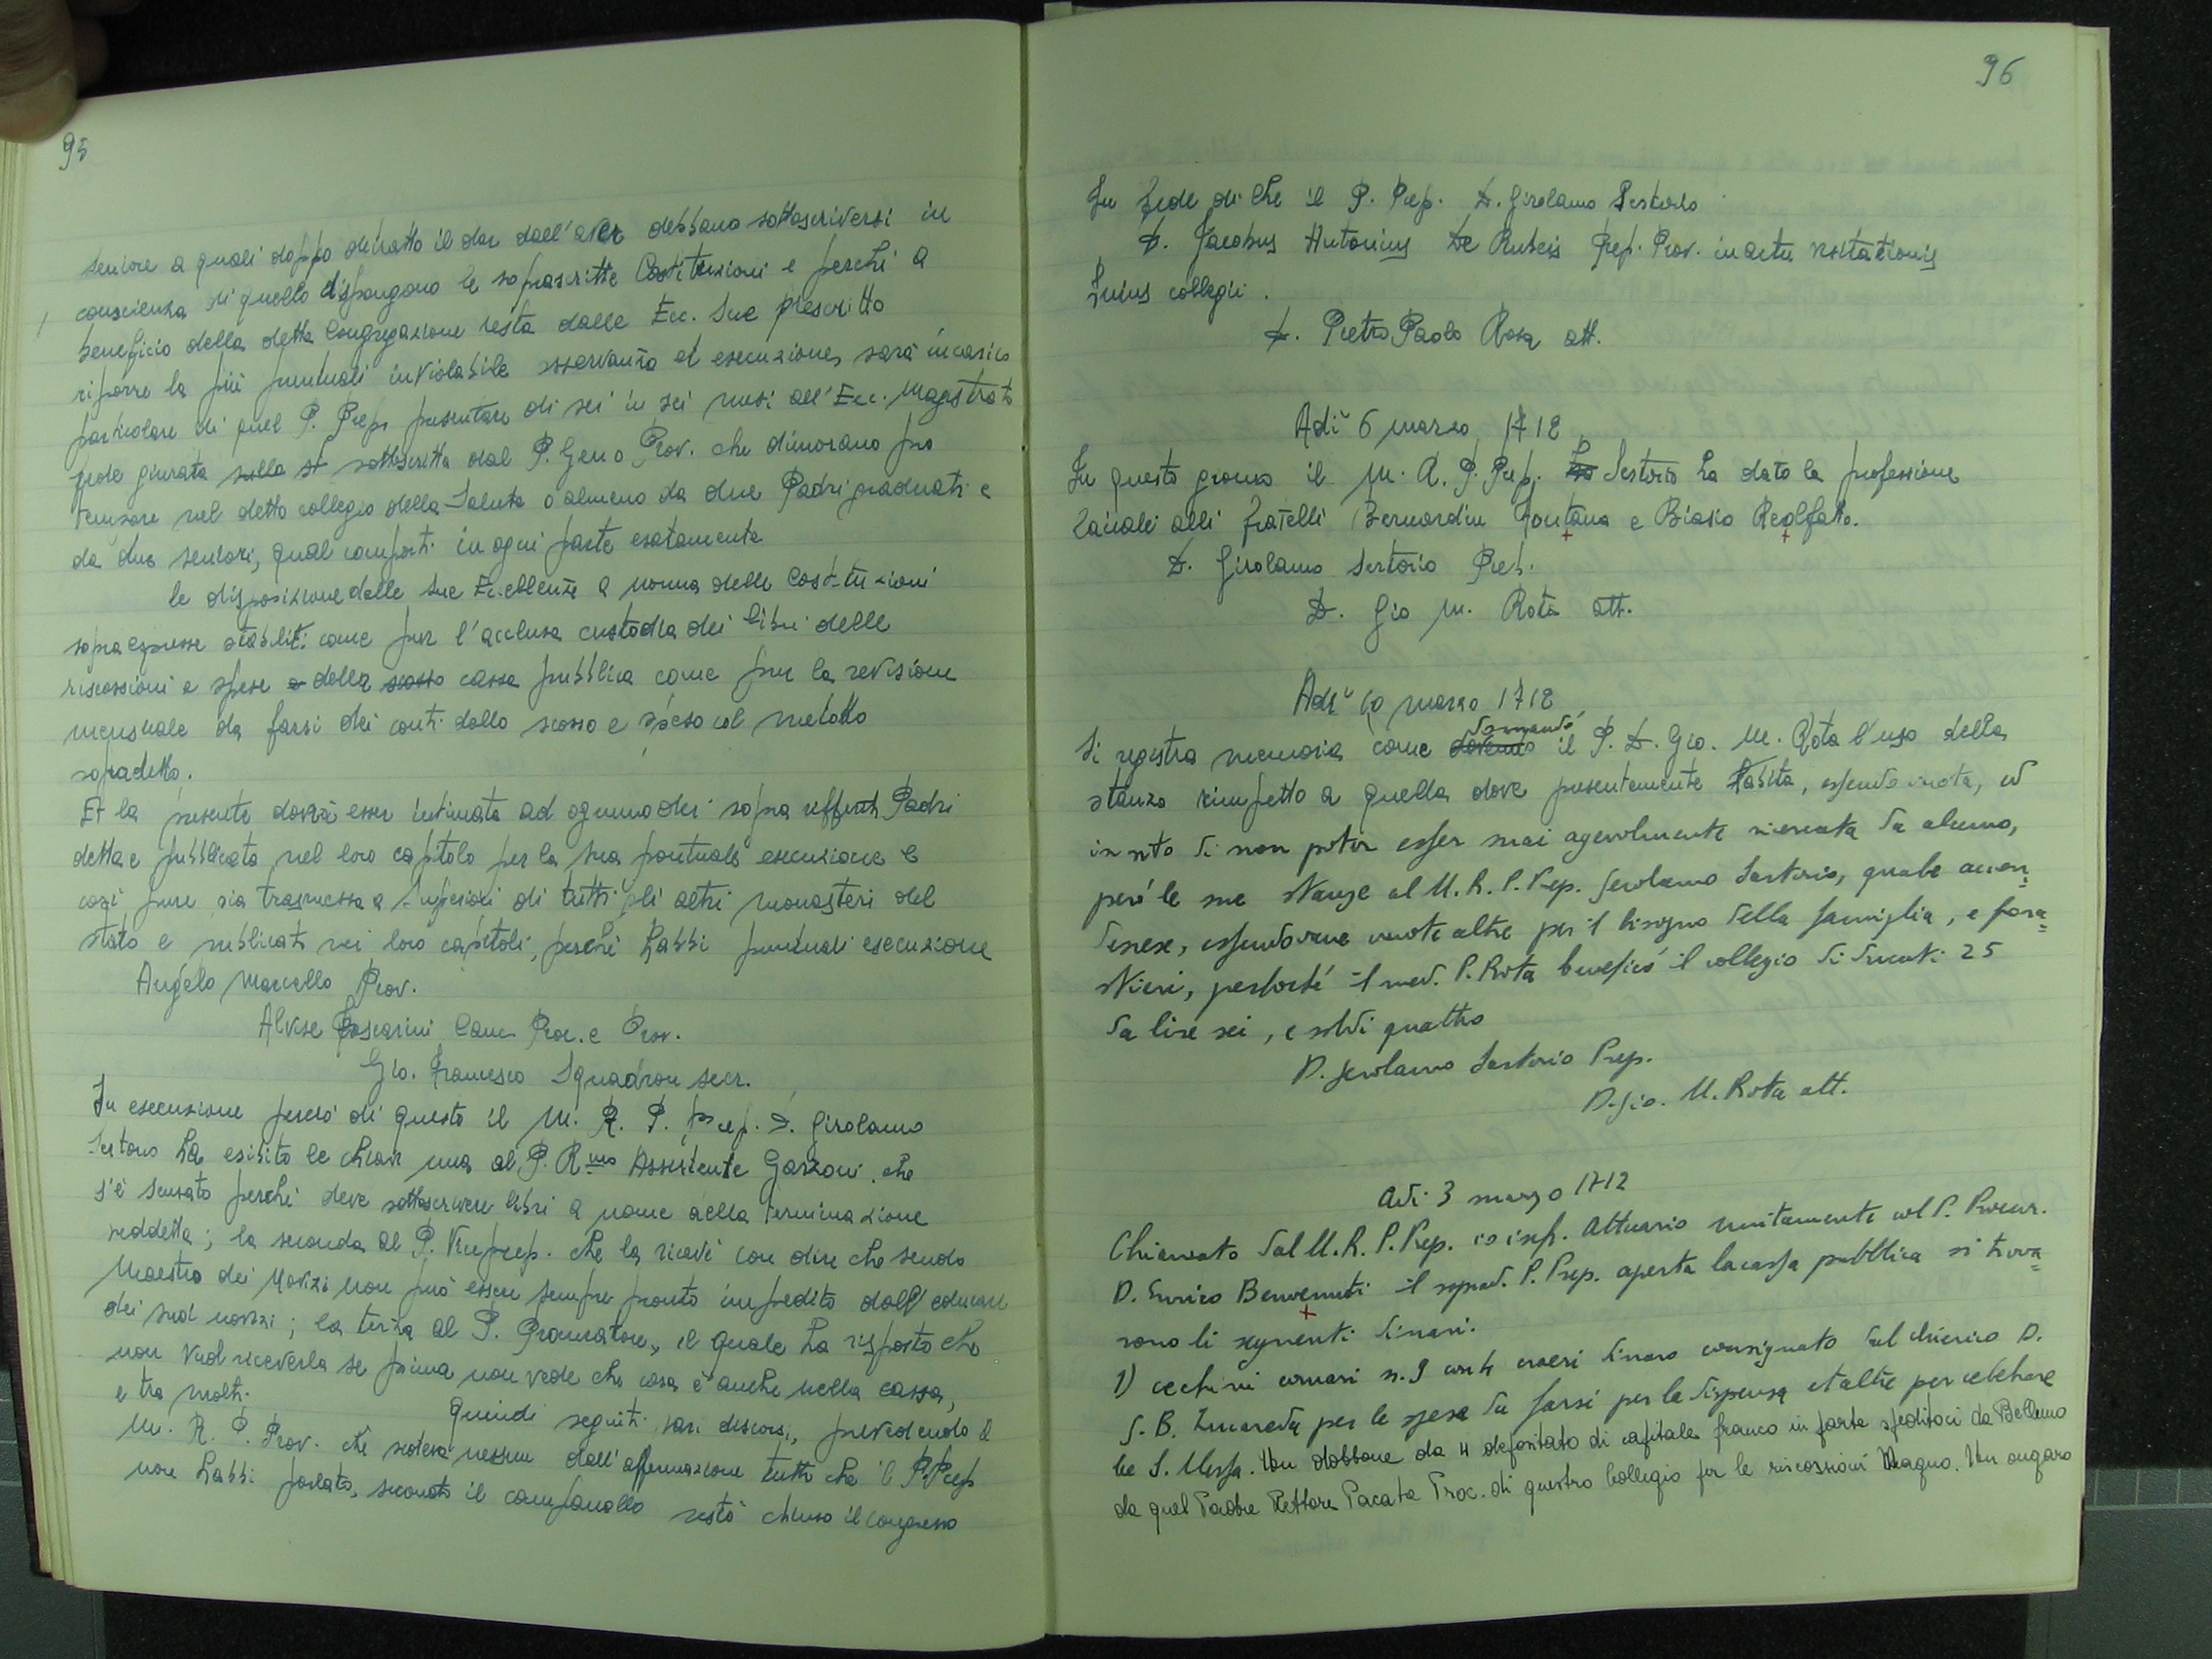 95
seniore a quali doppo detratto il dar dall'aver debbano sottoscriversi in
conscienza di quello dispongono le soprascritte Costituzioni e perchi a
beneficio della detta Congregazione resta dalle Ecc. Sue prescritto
riporre la più puntuali inviolabile osservanza et esecuzione, sarà incarico
particolare di quel P. Prep. presentare di sei in sei mesi all'Ecc. Magistrato
fede giurata sulla st sottoscritta dal P. Gen. o Prov. che dimorano pro
tempore nel detto collegio della Salute o almeno da due Padri graduati e
da due seniori, qual comporti in ogni parte esatamente
le disposizione delle Sue Eccellenze a norma delle Costituzioni
sopra espresse stabiliti come per l'acclusa custodia dei libri delle
riscossioni e spese e della scosso cassa pubblica come per la revisione
mensuale da farsi dei conti dello scosso e speso col metodo
sopradetto.
Et la presente dovrà esser intimata ad ognuno dei sopra refferiti Padri
detta e pubblicata nel loro capitolo per la sua pontuale esecuzione e
così pure sia trasmessa a superiori di tutti gli altri monasteri del
stato e publicati nei loro capitoli, perchè habbi puntuali esecuzione
Angelo Marcello Prov.
Alvise Foscarini Canc Proc. e Prov.
Gio. Francesco Squadron secr.
In esecuzione perciò di questo il M. R. P. Prep. D. Girolamo
Sertorio ha esibito le chiavi una al P. Rmo Assistente Garzoni, che
s'è scusato perchè deve sottoscrivere libri a nome della terminazione
suddetta; la seconda al P. Viceprep. che la ricevè con dire che sendo
Maestro dei Novizi non può essere sempre pronto impedito dall'educare
dei suoi novizi; la terza al P. Procuratore, il quale ha risposto che
non vuol riceverla se prima non vede che cosa è anche nella cassa,
e tra molti.
Quindi seguiti vari discorsi, prevedendo il
M. R. P. Prov. che nessun dall'affermazione tutto che il P. Prep
non habbi parlato, suonato il campanello restò chiuso il congresso
96
In fede di che il P. Prep. D. Girolamo Sertorio
D. Jacobus Antonius De Rubeis Prep. Prov. in actu visitationis
huius collegii.
D. Pietro Paolo Rosa att.
Adì 6 marzo 1712
In questo giorno il M. R. P. Prep. Sertorio ha dato la professione
laicale alli fratelli Bernardin Fontana e Biasio Reolfatto.
D. Girolamo Sertorio Prep.
D. Gio M. Rota att.
Adì 10 marzo 1712
domandò
Si registra memoria come dovendo il P. D. Gio. M. Rota l'uso della
stanza rimpetto a quella dove presentemente habita, essendo vuota, et
in sito di non poter esser mai agevolmente ricercata da alcuno,
però le sue stanze al M. R. P. Prep. Gerolamo Sertorio, quale accon=
discese, essendovene vuote altre per il bisogno della famiglia, e fora=
stieri, perlochè il med. P. Rota beneficò il collegio di ducati 25
da lire sei, e soldi quattro
D. Gerolamo Sertorio Prep.
D. Gio. M. Rota att.
Adì 3 marzo 1712
Chiamato dal M. R. P. Prep. io infr. Attuario unitamente col P. Procur.
D. Enrico Benvenuti il soprad. P. Prep. aperta la cassa pubblica si trova=
rono li seguenti dinari.
1) cechini n. 9 con 4 dinaro consignato dal chierico D.
G. B. per le spese da farsi per la dispensa et altre per celebrare
le S. Messa. Un dobbone da 4 depositato di capitale franco in parte speditoci da Belluno
da quel Padre Rettore Pacata Proc. di questro Collegio per le riscossioni Magno. Un ongaro